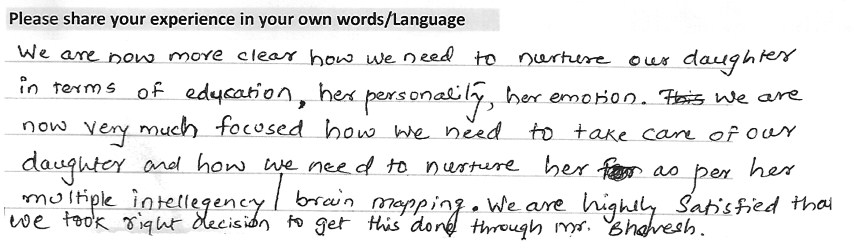 Please share your experience in your own words/Language
We are now more clear how we need to nurture our daughter
in terms of education, her personality, her emotion. This We are
now very much focused how we need to take care of our
daughter and how we need to nurture her for as per her
multiple intellegency / brain mapping. We are highly Satisfied that
we took right decision to get this done through mr. Bhavesh.